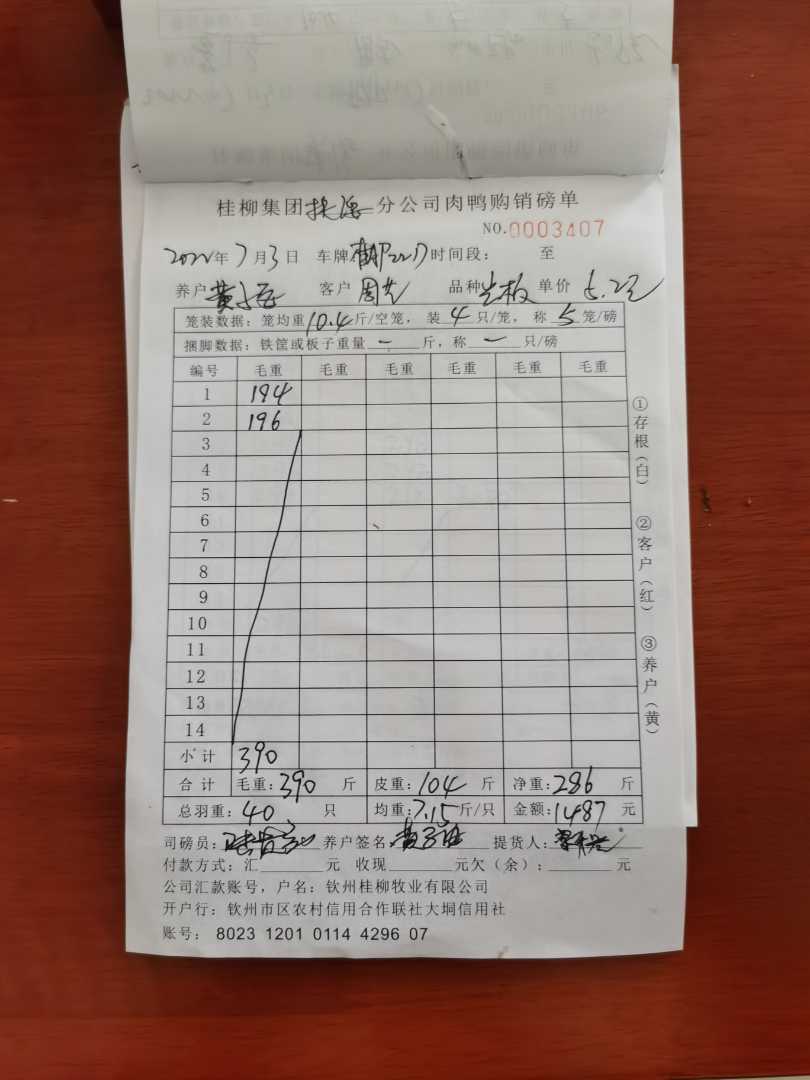 桂柳集团 分公司肉鸭购销磅单
NO.0003407
2022年7月3日 车牌 时间段： 至
养户 黄 客户 周 品种 单价 5.2元
笼装数据：笼均重10.4斤/空笼，装4只/笼，称5笼/磅
捆脚数据：铁筐或板子重量 — 斤，称 — 只/磅
编号 毛重 毛重 毛重 毛重 毛重 毛重
1 194
2 196
3
4
5
6
7
8
9
10
11
12
13
14
小计 390
合计 毛重：390 斤 皮重：104 斤 净重：286 斤
总羽重：40 只 均重：7.15斤/只 金额：1487 元
司磅员： 养户签名 黄 提货人：
付款方式：汇 元 收现 元欠（余）： 元
公司汇款账号，户名：钦州桂柳牧业有限公司
开户行：钦州市区农村信用合作联社大垌信用社
账号： 8023 1201 0114 4296 07
①存根（白） ②客户（红） ③养户（黄）